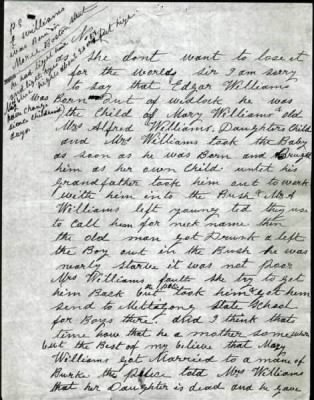 P.S.
E Williams
was Born
Mary
he had light
and light
light
dont
hair change
since childhood
days
No
as she dont want to lose it
for the worlds sir I am sorry
to say that Edgar Williams
was Born Out of wedlock he was
the Child of Mary Williams's
Mrs Alfred Williams. Daughters Child
and Mrs Williams took the Baby
as soon as he was Born and Brought
him as her own Child until his
Grandfather took him out to work
with him into the Bush Mr A
Williams left young ted they use
to call him for nick name then
the old man got Drunk a left
the Boy out in the Bush he was
nearly starve it was not poor
Mrs Williams faulte she try to get
him Back but the took him got him
send to State School
for Boys there, and I think that
time now that he a mother somewere
but the Best of my believe that Mary
Williams got Married to a man of
Burke the police told Mrs Williams
that her Daughter is dead and he gave